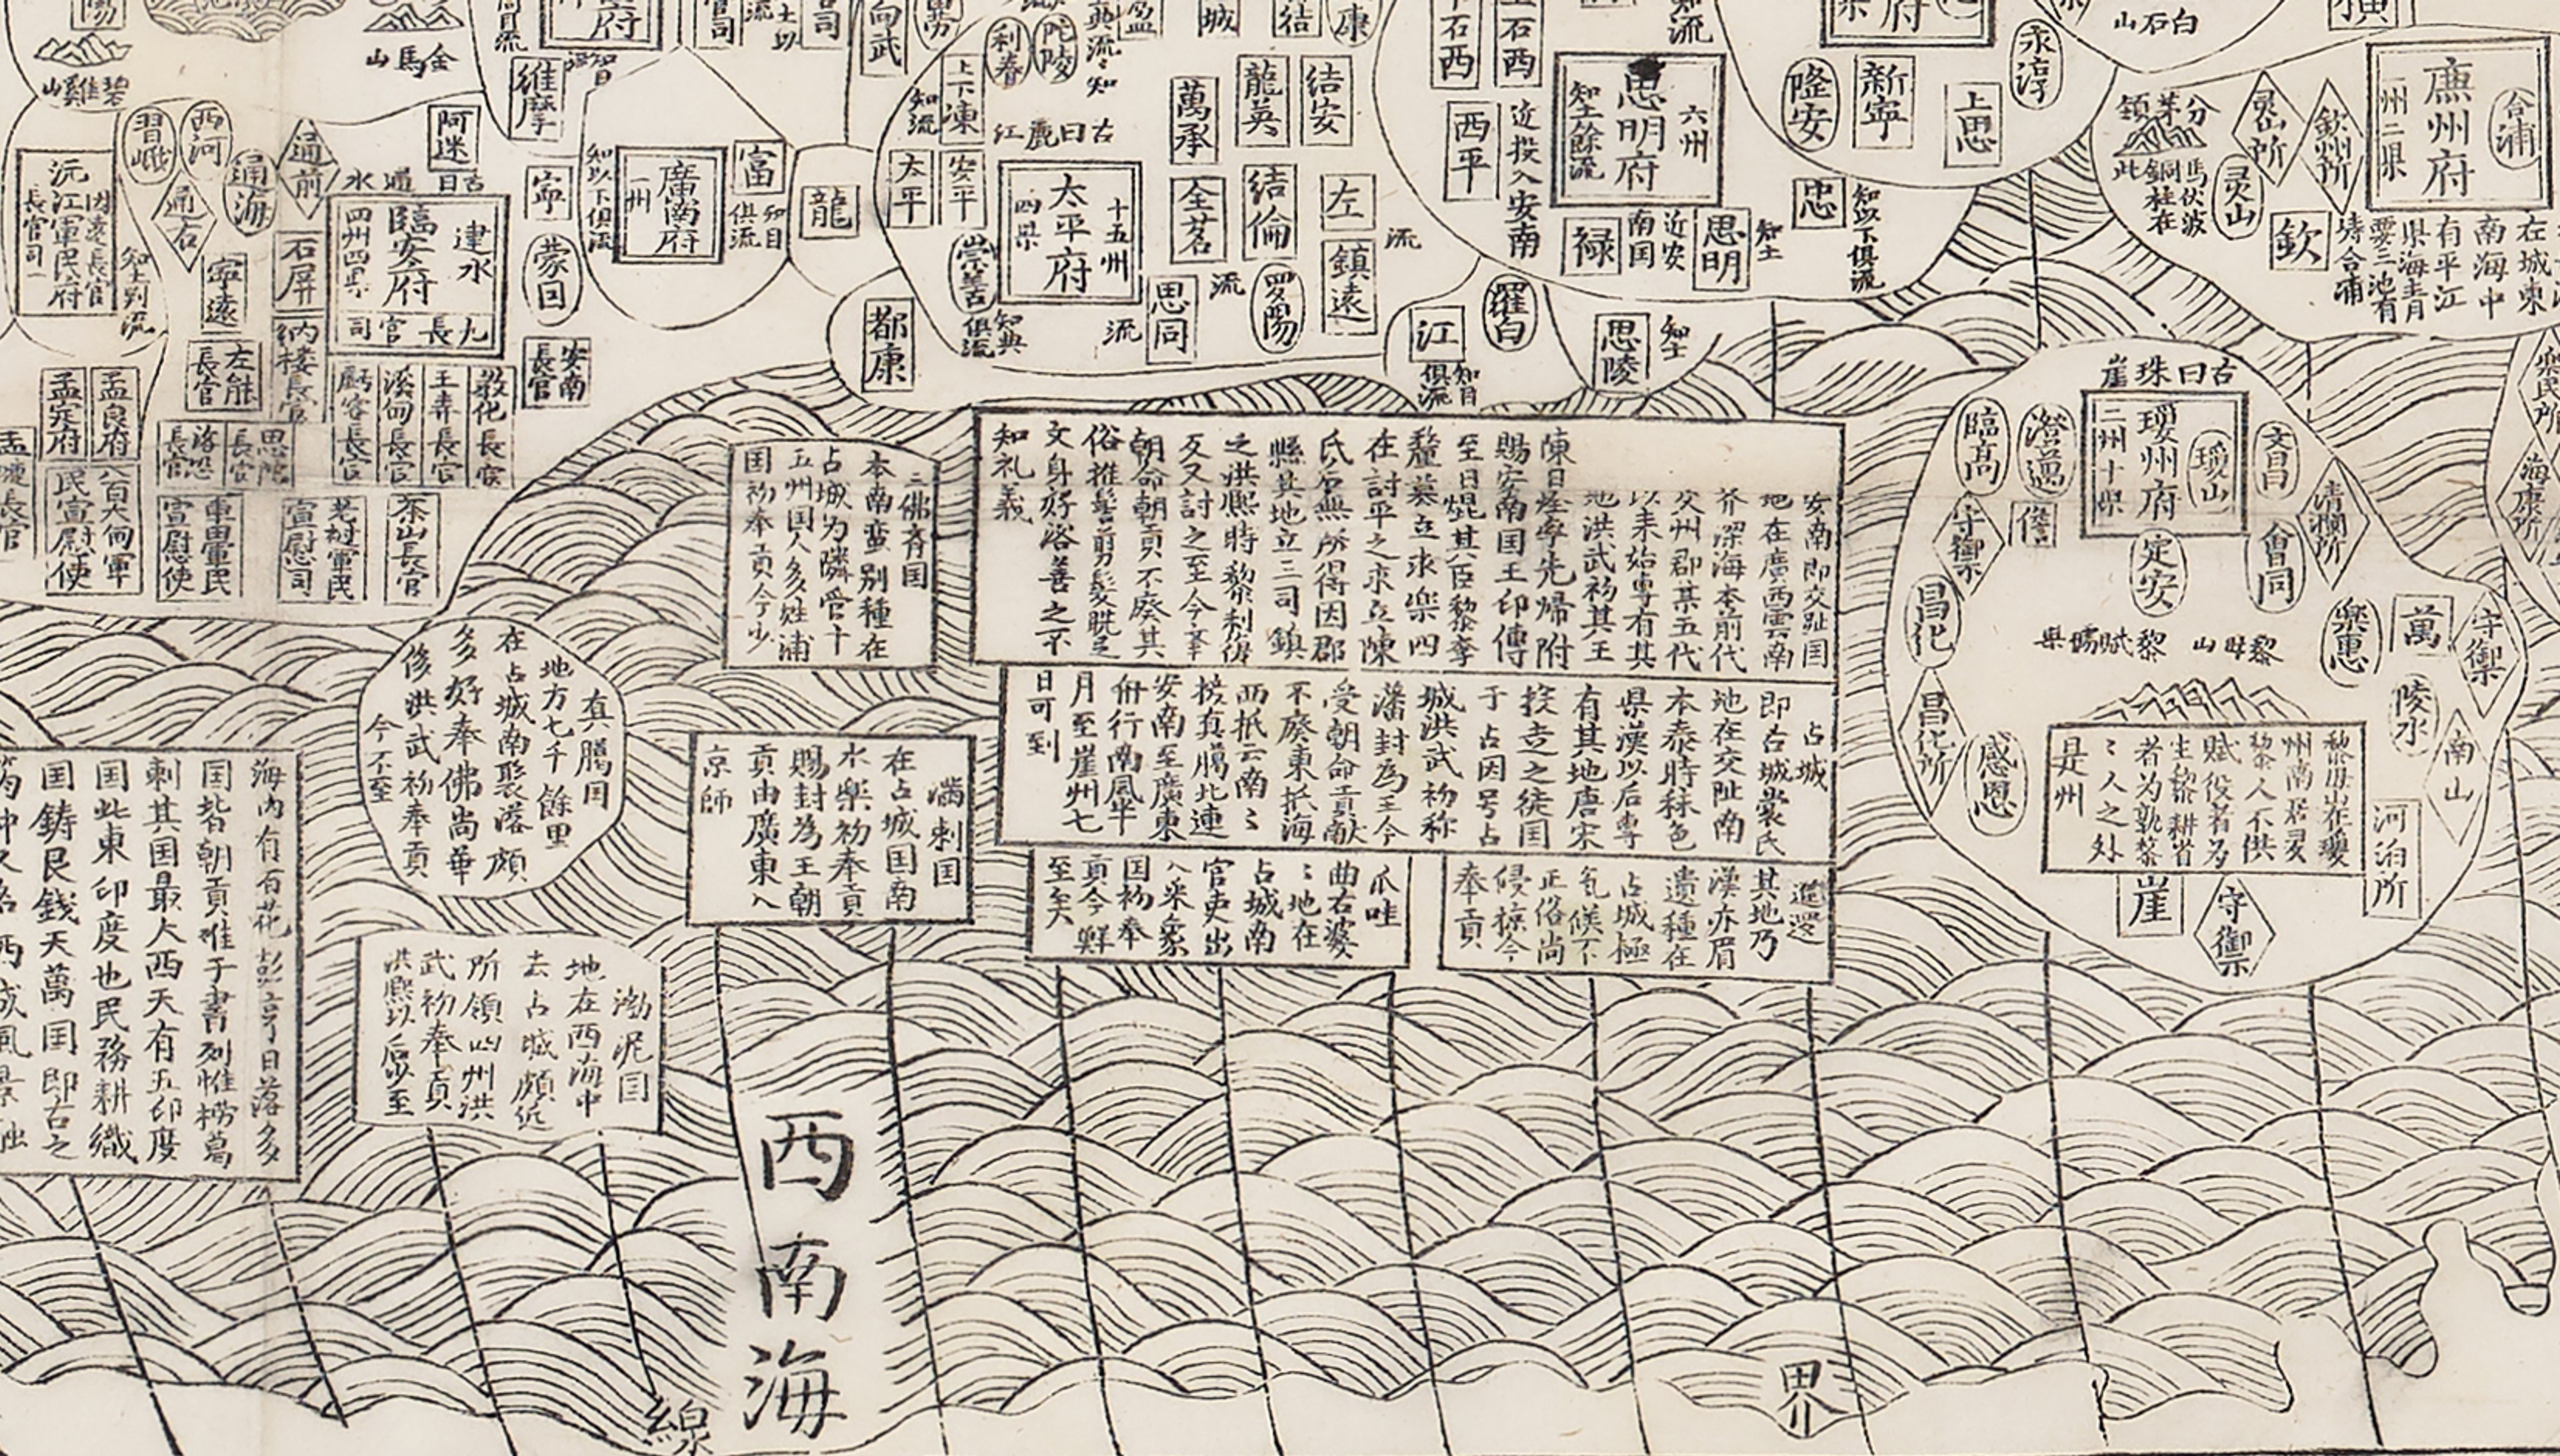 碧雞山
金馬山
習峨
西河
通海
通前
通右
阿迷
維摩
沅江軍民府
因遠長官
長官司一
知土別流
寧遠
石屏
古曰通水
臨安府
建水
四州四県
九長官司
寧
蒙自
納楼長官
左能長官
虧容長官
溪甸長官
王弄長官
教化長官
安南長官
思陀長官
落恐長官
孟定府
孟良府
八百大甸軍民宣慰使
車里軍民宣慰使
老撾軍民宣慰司
茶山長官
廣南府
一州
知以下俱流
富
知目俱流
龍
都康
向武
上下凍
知流
利春
陀陵
古曰麗江
太平
安平
太平府
十五州
四県
崇善
知典俱流
萬承
龍英
結安
全茗
結倫
左
流
鎮遠
羅陽
流
思同
流
上石西
西平
近投入安南
思明府
六州
知土餘流
禄
近安南国
思明
知土
忠
知以下俱流
江
知目俱流
羅白
思陵
知土
隆安
新寧
上思
永淳
白石山
分茅嶺
馬伏波銅柱在此
灵山所
欽州所
灵山
欽
廉州府
州二県
合浦
古曰珠崖
瓊州府
瓊山
二州十県
臨高
澄邁
儋
守禦
昌化
昌化所
感恩
文昌
清瀾所
會同
定安
樂惠
萬
守禦
陵水
南山
黎母山
黎母山在瓊
州南居灵
黎人不供
賦役者为
生黎耕省
者为孰黎
〻人之外
是州
河泊所
崖
守禦
樂民所
海康所
安南即交趾国
地在廣西雲南
界深海本前代
交州郡某五代
以来始專有其
地洪武初其王
陳日煃率先歸附
賜安南国王印傳
至日焜其臣黎季
犛墓立永樂四
在討平之求立陳
氏后無所得因郡
縣其地立三司鎮
之洪熙時黎利復
反又討之至今率
朝命朝貢不廢其
俗推髻剪髮脱足
文身好浴善之不
知礼義
占城
即占城裳氏
地在交趾南
本泰時林邑
県漢以后專
有其地唐宋
于占因号占
城洪武初称
藩封為王今
受朝命貢献
不廢東抵海
西抵云南〻
接真臘北連
安南至廣東
併行南風半
月至崖州七
日可到
三佛斉国
本南蛮别種在
占城为隣管十
五州国人多姓浦
国初奉貢今少
真臘国
地方七千餘里
在占城南聚落頗
多好奉佛尚華
俊洪武初奉貢
今不至
滿剌国
在占城国南
永樂初奉貢
賜封為王朝
貢由廣東入
京師
爪哇
曲右婆
〻地在
占城南
官吏出
入乘象
国初奉
貢今鮮
至矣
暹邏
其地乃
漢赤眉
遺種在
占城極
気候不
正俗尚
侵掠今
奉貢
渤泥国
地在西海中
去占城頗近
所領四州洪
武初奉貢
洪熙以后少至
海内有百花彭亨日落多
国皆朝貢难于書列惟榜葛
剌其国最大西天有五印度
国此東印度也民務耕織
国鋳艮錢天萬国即古之
西南海
界
線